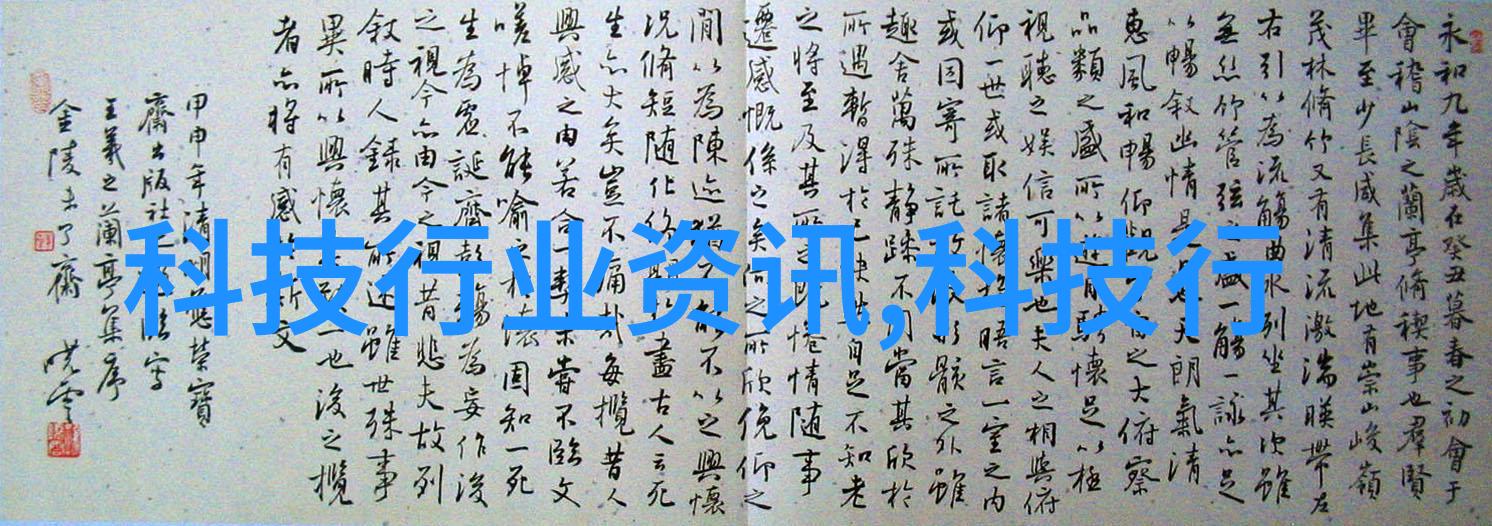 永和九年歲在癸丑暮春之初會于
會稽山陰之蘭亭脩稧事也群賢
畢至少長咸集此地有崇山峻嶺
茂林脩竹又有清流激湍暎帶左
右引以為流觴曲水列坐其次雖
無絲竹管弦之盛一觴一詠亦足
以暢敘幽情是日也天朗氣清
惠風和暢仰觀宇宙之大俯察
品類之盛所以遊目騁懷足以極
視聽之娛信可樂也夫人之相與俯
仰一世或取諸懷抱晤言一室之內
或因寄所託放浪形骸之外雖
趣舍萬殊靜躁不同當其欣於
所遇暫得於己快然自足不知老
之將至及其所之既惓情隨事
遷感慨係之矣向之所欣俛仰之
閒以為陳迹猶不能不以之興懷
況脩短隨化終期於盡古人云死
生亦大矣豈不痛哉每攬昔人
興感之由若合一契未嘗不臨文
嗟悼不能喻之於懷固知一死
生為虛誕齊彭殤為妄作後
之視今亦由今之視昔悲夫故列
敘時人錄其所述雖世殊事
異所以興懷其致一也後之攬
者亦將有感於斯文
甲申年清明應榮寶
齋出版社之臨寫
王羲之蘭亭集序
金陵未了齋
科技行业资讯,科技行